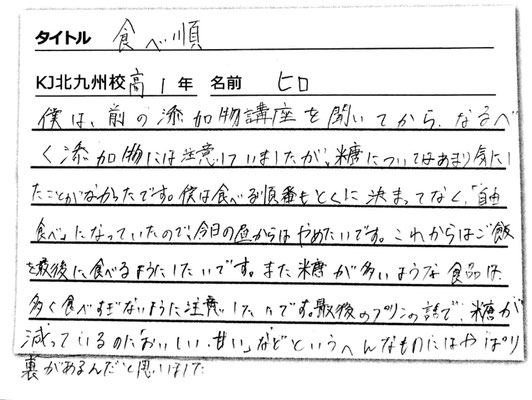 タイトル 食べ順
KJ北九州校 高1年 名前 ヒロ
僕は、前の添加物講座を聞いてから、なるべ
く添加物には注意していましたが、糖についてはあまり気にし
たことがなかったです。僕は食べる順番もとくに決まってなく、「自由
食べ」になっていたので、今日の昼からはやめたいです。これからはご飯
を最後に食べるようにしたいです。また糖が多いような食品は、
多く食べすぎないように注意したいです。最後のプリンの話で、糖が
減っているのに「おいしい、甘い」などというへんなものにはやぱり
裏があるんだと思いました